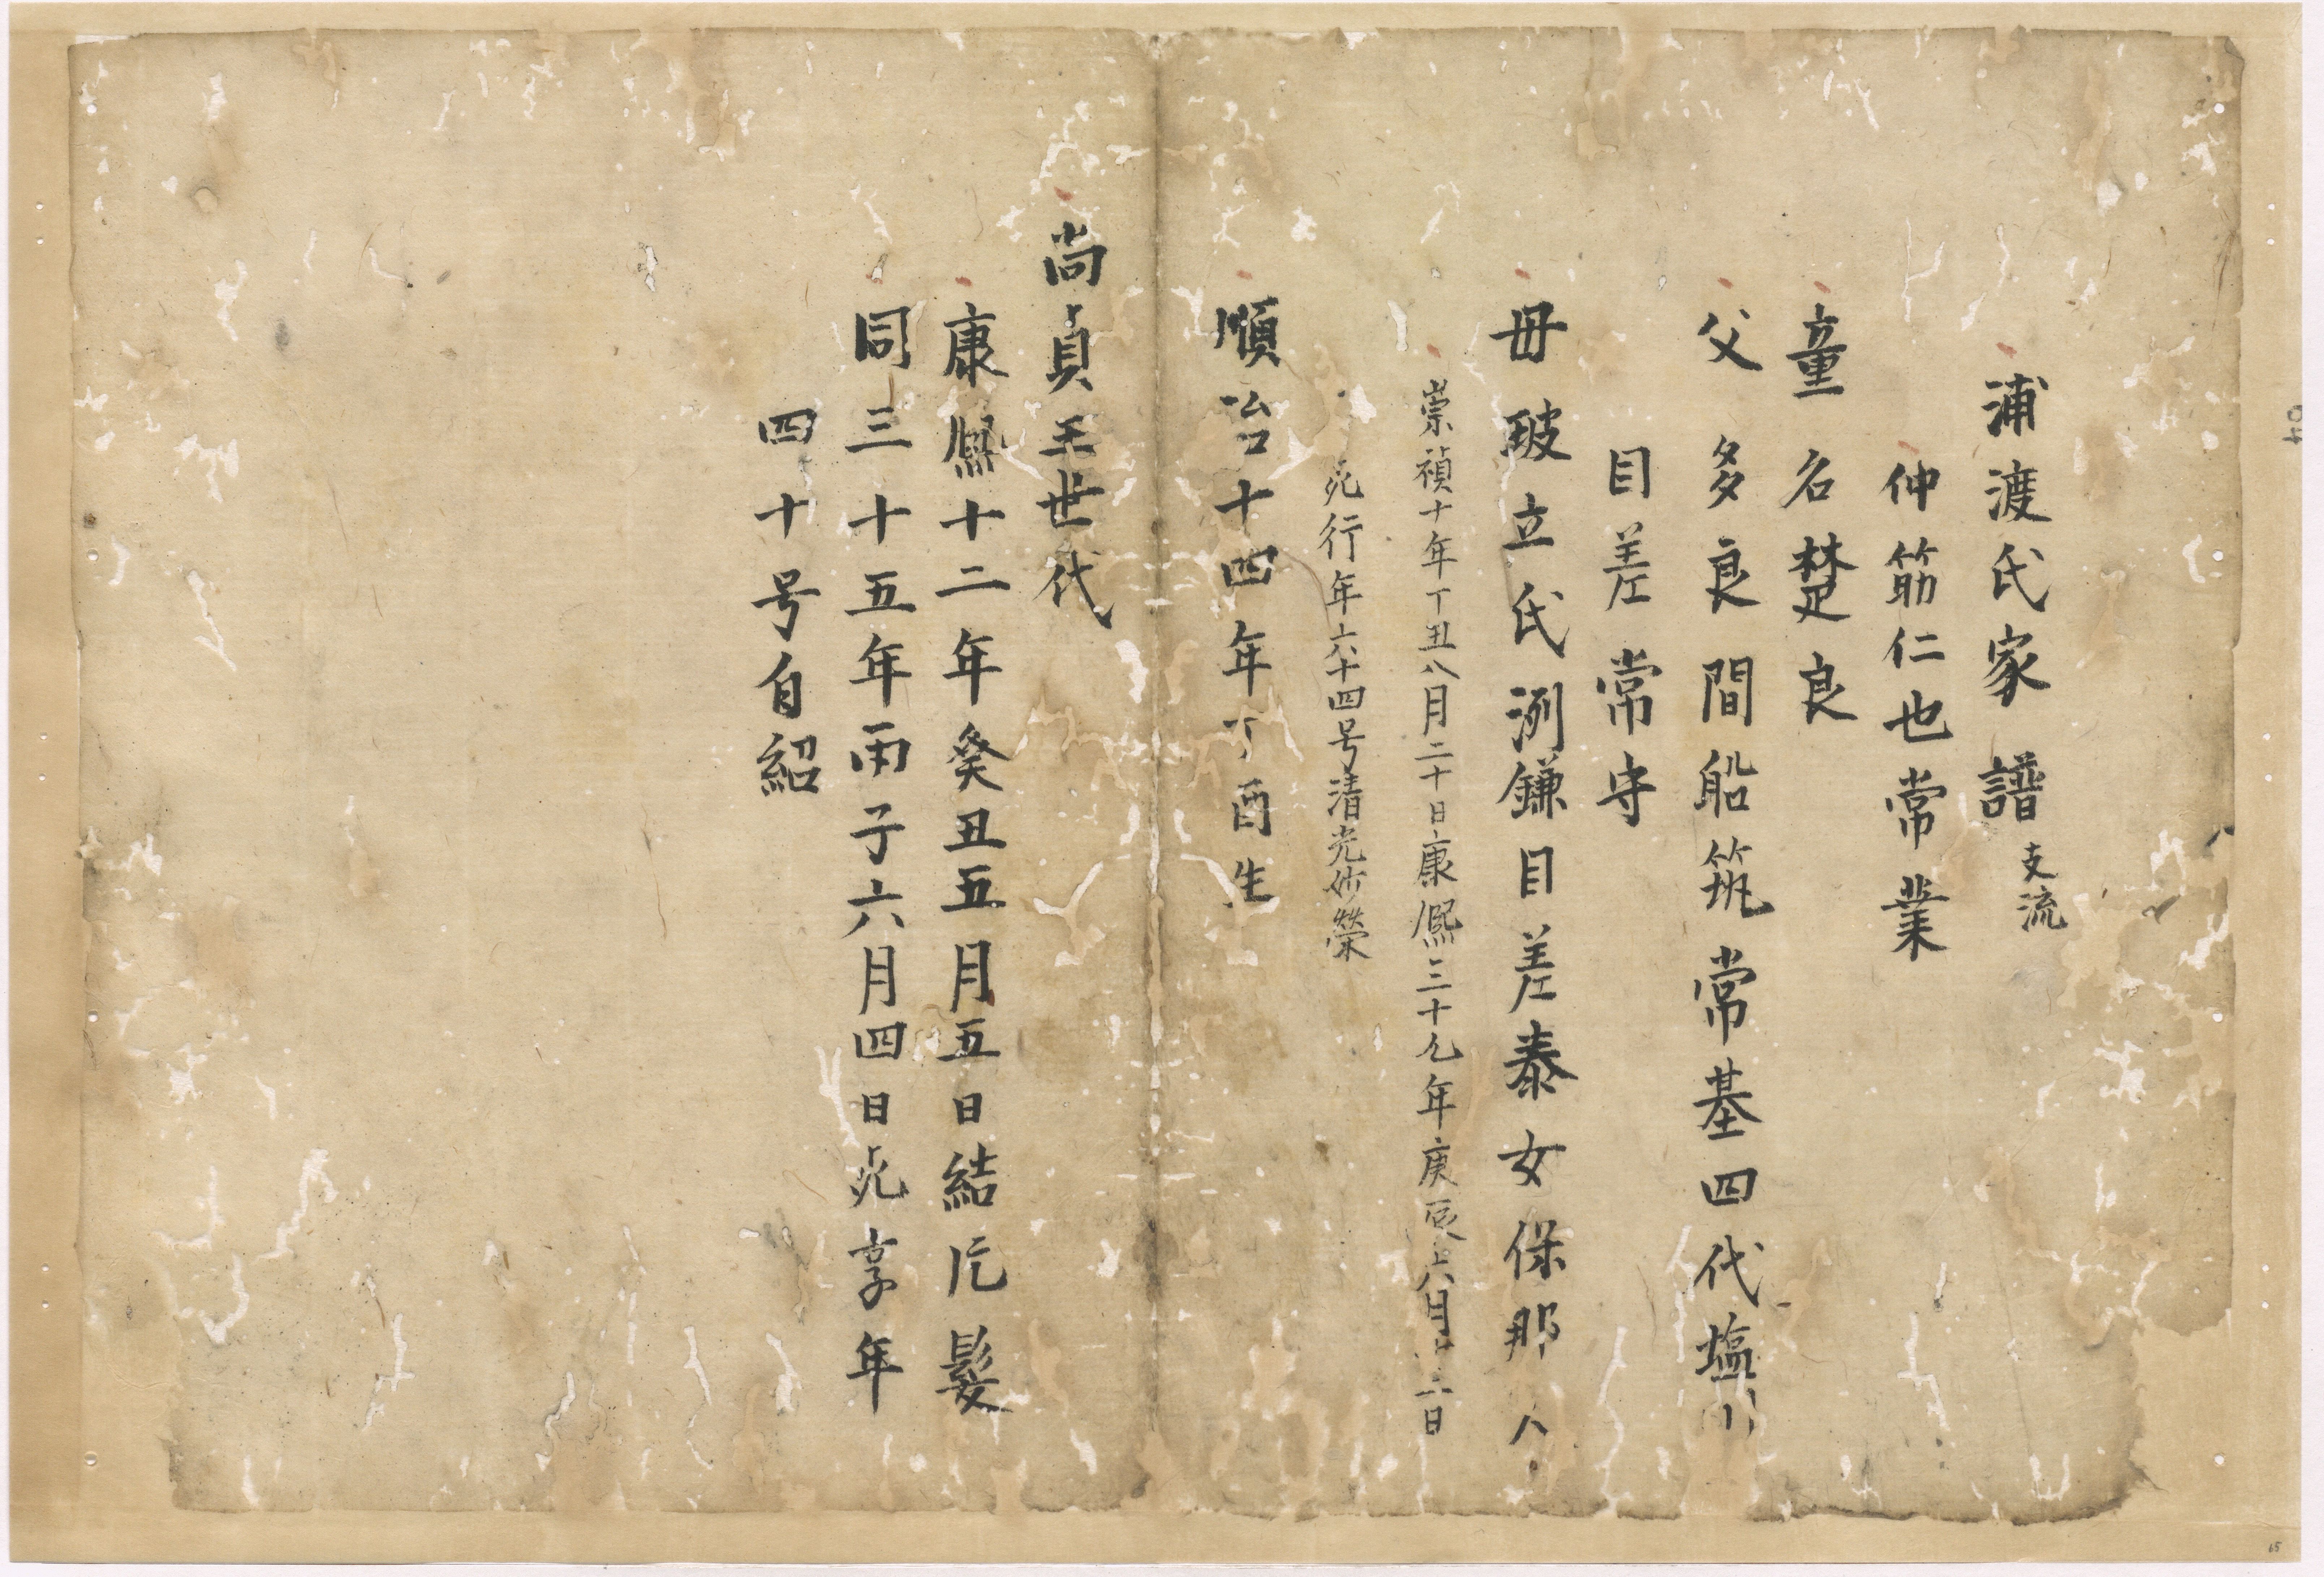 浦渡氏家譜支流
仲筋仁也常業
童名楚良
父多良間船筑常基四代塩川
目差常守
母玻立氏洌鎌目差泰女保那人
崇禎十年丁丑八月二十日康熙三十九年庚辰六月 日
死行年六十四号清光妙榮
順治十四年丁酉生
尚貞王世代
康熙十二年癸丑五月五日結片髪
同三十五年丙子六月四日死享年
四十号自紹
65